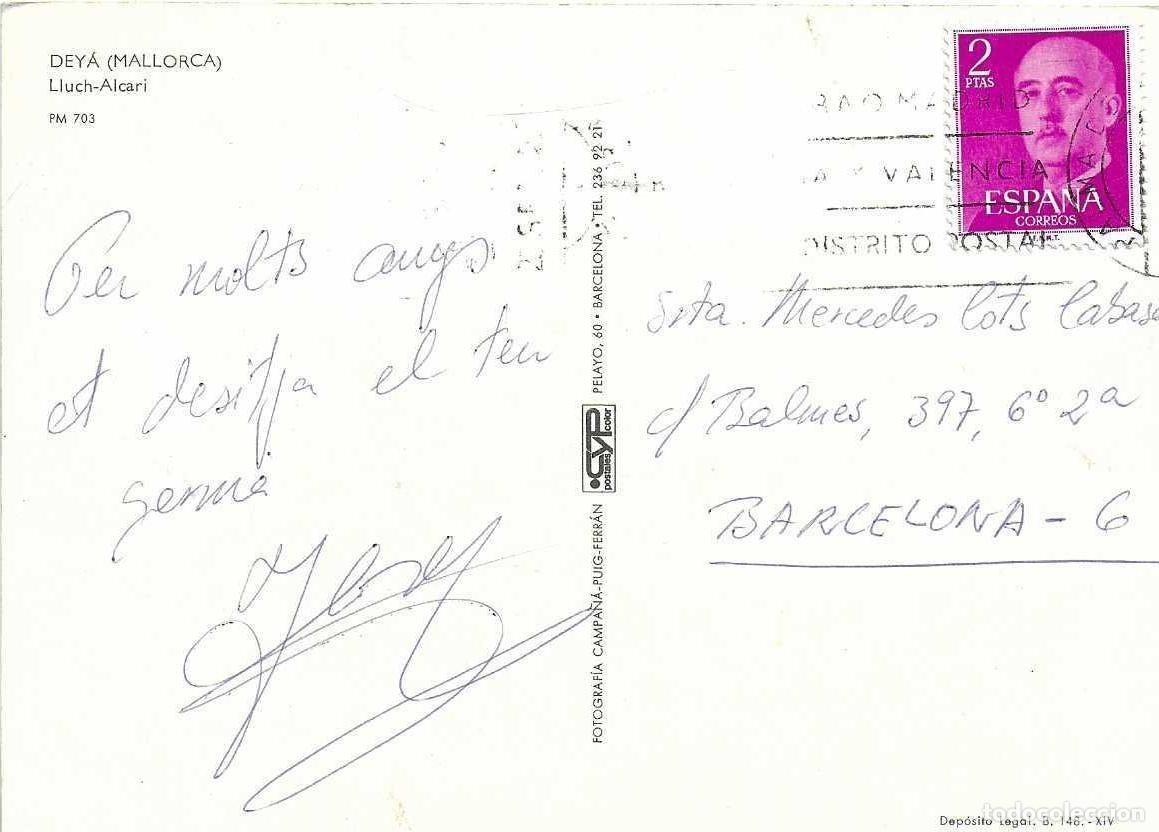 DEYÁ (MALLORCA)
Lluch-Alcari
PM 703
Per molts anys
et desitja el teu
germà
FOTOGRAFÍA CAMPAÑÁ-PUIG-FERRÁN
CYP
postales color
PELAYO, 60 • BARCELONA • TEL. 236 92 21
2
PTAS
ESPAÑA
CORREOS
BAO MADRID
A Y VALENCIA
DISTRITO POSTAL
Srta. Mercedes
c/ Balmes, 397, 6º 2ª
BARCELONA - 6
Depósito Legal. B. 148.-XIV
todocoleccion